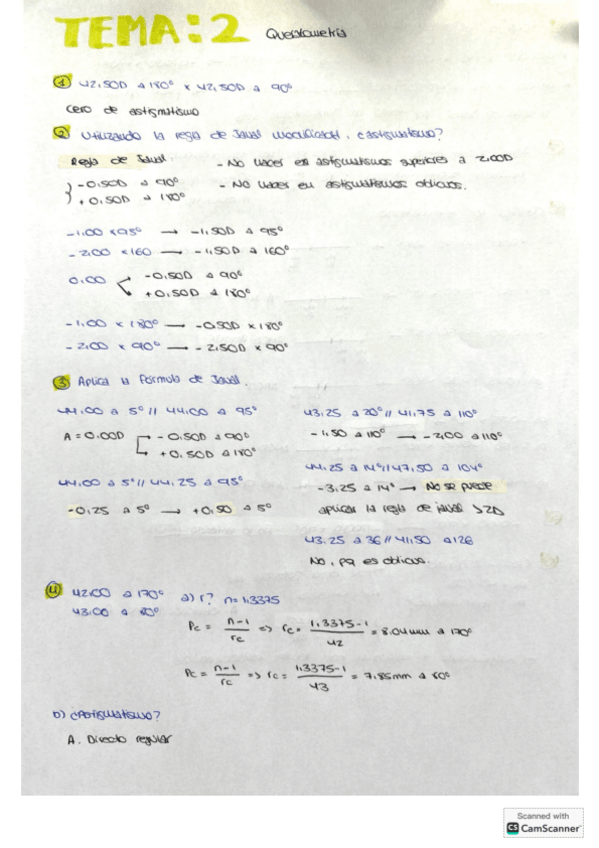 TEMA: 2 Queratometría
① 42,50D a 180° x 42,50D a 90°
Cero de astigmatismo
② Utilizando la regla de Javal modificada, ¿astigmatismo?
Regla de Javal: - No hacer en astigmatismos superiores a 2,00D
-0,50D a 90° - No hacer en astigmatismos oblicuos.
+0,50D a 180°
-1,00 x 95° → -1,50D a 95°
-2,00 x 160 → -1,50D a 160°
0,00 -0,50D a 90°
+0,50D a 180°
-1,00 x 180° → -0,50D x 180°
-2,00 x 90° → -2,50D x 90°
③ Aplica la Fórmula de Javal.
44,00 a 5° // 44,00 a 95°
A = 0,00D - 0,50D a 90°
+ 0,50D a 180°
44,00 a 5° // 44,25 a 95°
-0,25 a 5° → +0,50 a 5°
43,25 a 20° // 41,75 a 110°
-1,50 a 110° → -2,00 a 110°
44,25 a 14° // 47,50 a 104°
-3,25 a 14° → No se puede
aplicar la regla de javal >2D
43,25 a 36 // 41,50 a 126
No, pq es oblicuo.
④ 42,00 a 170° a) r? n=1,3375
43,00 a 80°
Pc = n-1/rc => rc = 1,3375-1/42 = 8,04mm a 170°
Pc = n-1/rc => rc = 1,3375-1/43 = 7,85mm a 80°
b) ¿Astigmatismo?
A. Directo regular
Scanned with
CS CamScanner